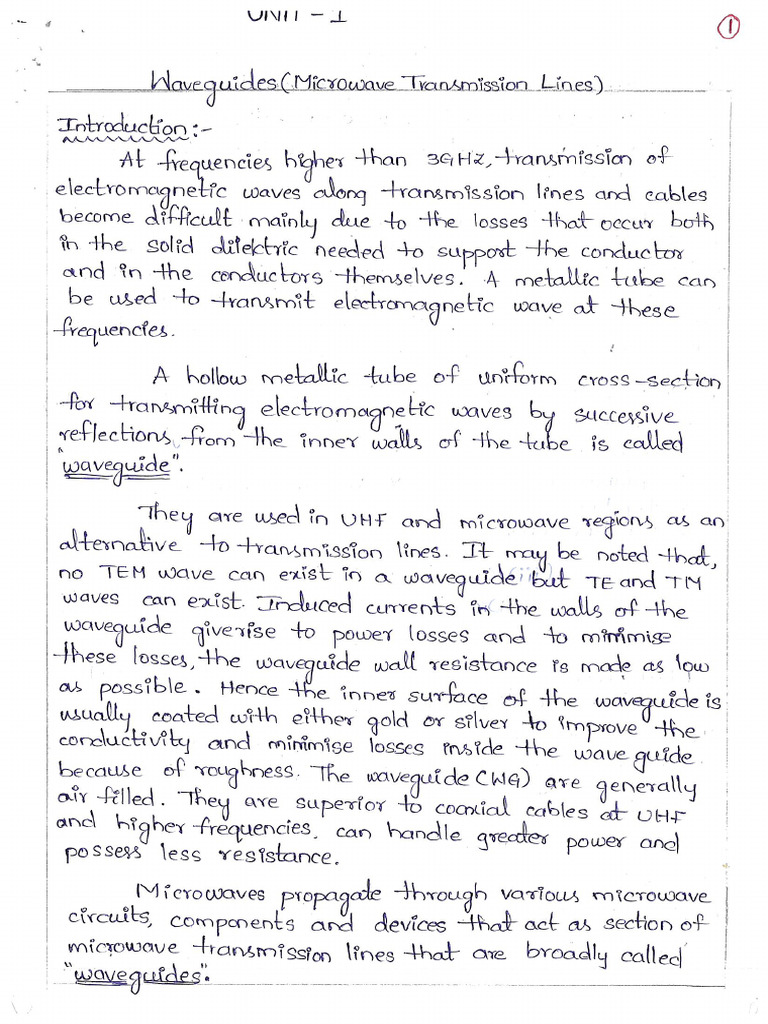 UNIT - 1
1
Waveguides (Microwave Transmission Lines)
Introduction:-
At frequencies higher than 3GHZ, transmission of
electromagnetic waves along transmission lines and cables
become difficult mainly due to the losses that occur both
in the solid dilektric needed to support the conductor
and in the conductors themselves. A metallic tube can
be used to transmit electromagnetic wave at these
frequencies.
A hollow metallic tube of uniform cross-section
for transmitting electromagnetic waves by successive
reflections from the inner walls of the tube is called
"waveguide".
They are used in UHF and microwave regions as an
alternative to transmission lines. It may be noted that,
no TEM wave can exist in a waveguide but TE and TM
waves can exist. Induced currents in the walls of the
waveguide giverise to power losses and to minimise
these losses, the waveguide wall resistance is made as low
as possible. Hence the inner surface of the waveguide is
usually coated with either gold or silver to improve the
conductivity and minimise losses inside the wave guide
because of roughness. The waveguide (WG) are generally
air filled. They are superior to coaxial cables at UHF
and higher frequencies, can handle greater power and
possess less resistance.
Microwaves propagate through various microwave
circuits, components and devices that act as section of
microwave transmission lines that are broadly called
"waveguides".